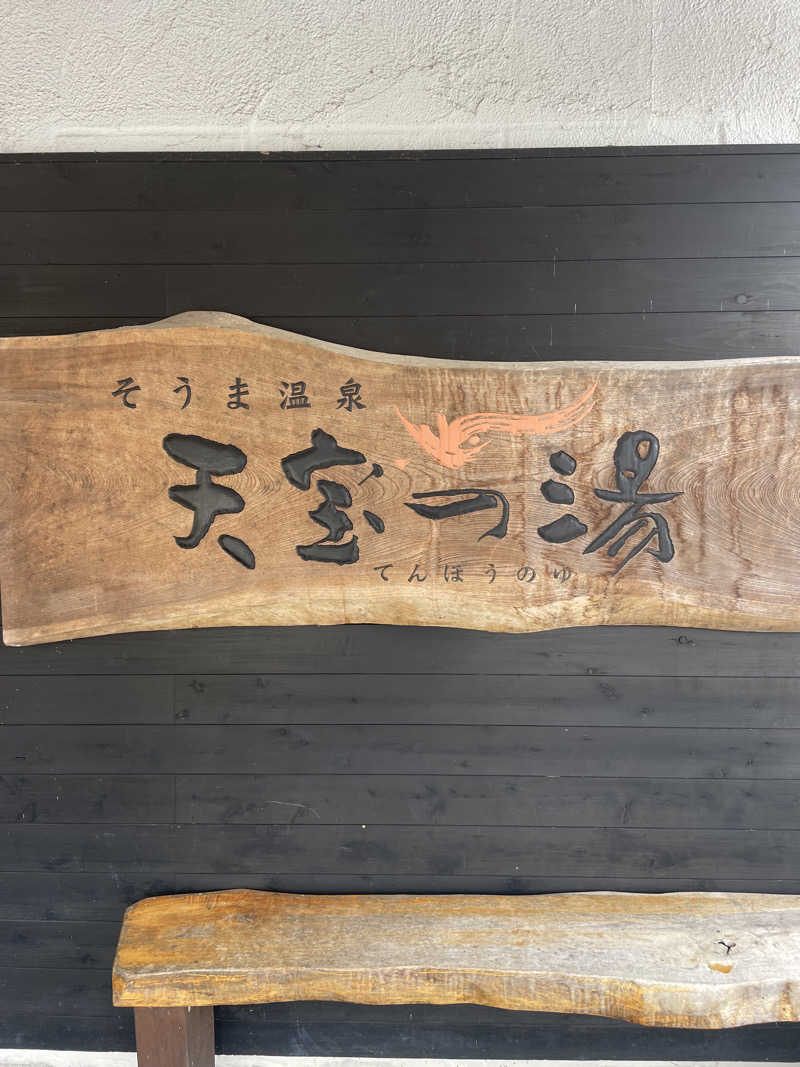 そうま温泉
天宝の湯
てんぽうのゆ